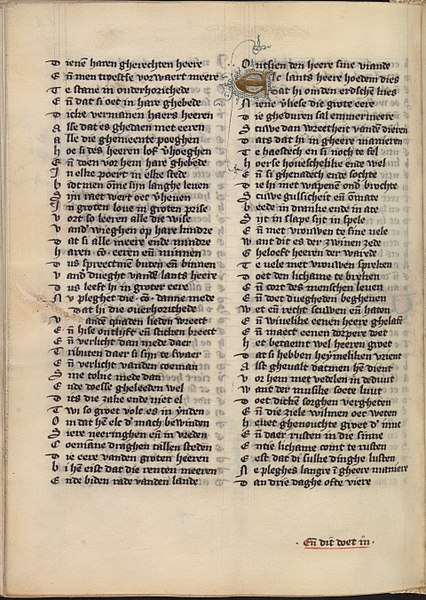 D ienen haren gherechten heere
E ñ men troestse vorwaert meere
T e stane in onderhorichede
E ñ dat si oet in hare ghebede
D icke vermanen haers heeren
A lse dat es ghedaen met eeren
A lle die ghemeente pooghen
H oe si des heeren lof vhoeghen
E ñ doen vor hem hare ghebede
I n elke poert in elke stede
B idt men om sijn langhe leuen
S ijn raet wert oec vheuen
I n groten loue in groten prise
V ort so leeren alle die wise
V and wieghen op hare kindre
D at si alle meere ende mindre
H aren co. eeren ende minnen
D us spreect men buten eñ binnen
V and duegt vands lants heere
D us leeft hi in groter eere
N v pleghet die co. danne mede
D at hi die onderhorichede
V ande quaden lieden weect
E ñ hise ontlijft eñ sticken breect
E ñ verlicht dan mede daer
T ributen daer si sijn te swaer
E ñ verlicht vanden coeman
S ine tolne mede dan
E nde welse gheleeden wel
D uts die zake ende niet el
T wi so groet volc es in ynden
O m dat hē ele d mach bewinden
S ine neeringhen eñ in vreden
C oemanne draghen tallen steden
D ie eere vanden groten heeren
B i hē eist dat die renten meeren
E nde biden rade vanden lande
O ntsien den heere sine viande
D es lants heere hoedem dies
D at hi om den erdschē kies
N iene vliese die grote eere
D ie gheduren sal emmermeere
S cuwe dan wreetheit vandē dieren
D ats dat hi in gheere manieren
T e haestech en si noch te fel
H oerse houeschelike ende wel
E ñ si ghenadech ende sochte
D ie hi met wapene ond brochte
S cuwe gulsicheit eñ omate
B eede in drinkene ende in ate
S ijt in slape sijt in spele
E ñ met vrouwen te sine vele
W ant dit es der zwinen zede
G heloeft heeren der warede
T e vele met vrouwen spreken
D oet den lichame te breken
E ñ cort des menschen leuen
E ñ doet duegheden begheuen
W et eñ recht scuwen eñ haten
E ñ wiuelike eenen heere ghelatē
E ñ maect eenen dorpere doet
H et betaemt wel heeren groet
D at si hebben heymeliken vrient
A lst gheualt datmen hē dient
V or hem met vedelen in deduut
W ant der musike soete luut
D oet dickē sorghen vergheten
E ñ die ziele wilmen oet weten
H euet ghenouchte groet d inne
E ñ daer rusten in die sinne
E nde lichame comt te rusten
E est dat di sulke dinghe lusten
N e pleghes langre ī gheere maniere
D an drie daghe ofte viere
Eñ dit doet in.